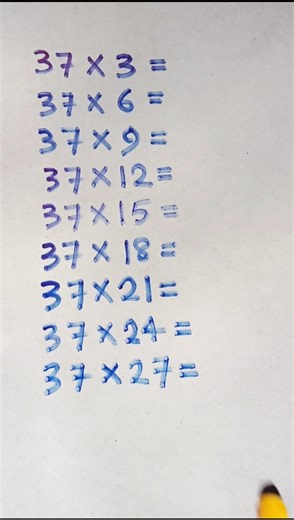 37 × 3 =
37 × 6 =
37 × 9 =
37 × 12 =
37 × 15 =
37 × 18 =
37 × 21 =
37 × 24 =
37 × 27 =